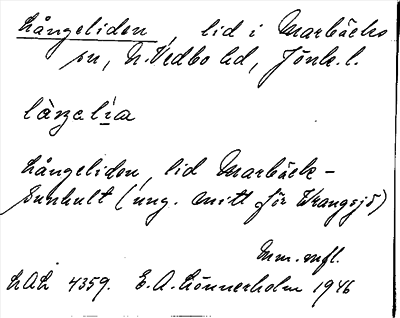 Långeliden, lid i Marbäcks
sn, N. Vedbo hd, Jönk. l.
Långeliden, lid Marbäck-
Sunhult (ung. mitt för Vrangsjö)
Mm. mfl.
LAL 4359. E. A. Lönnerholm 1946